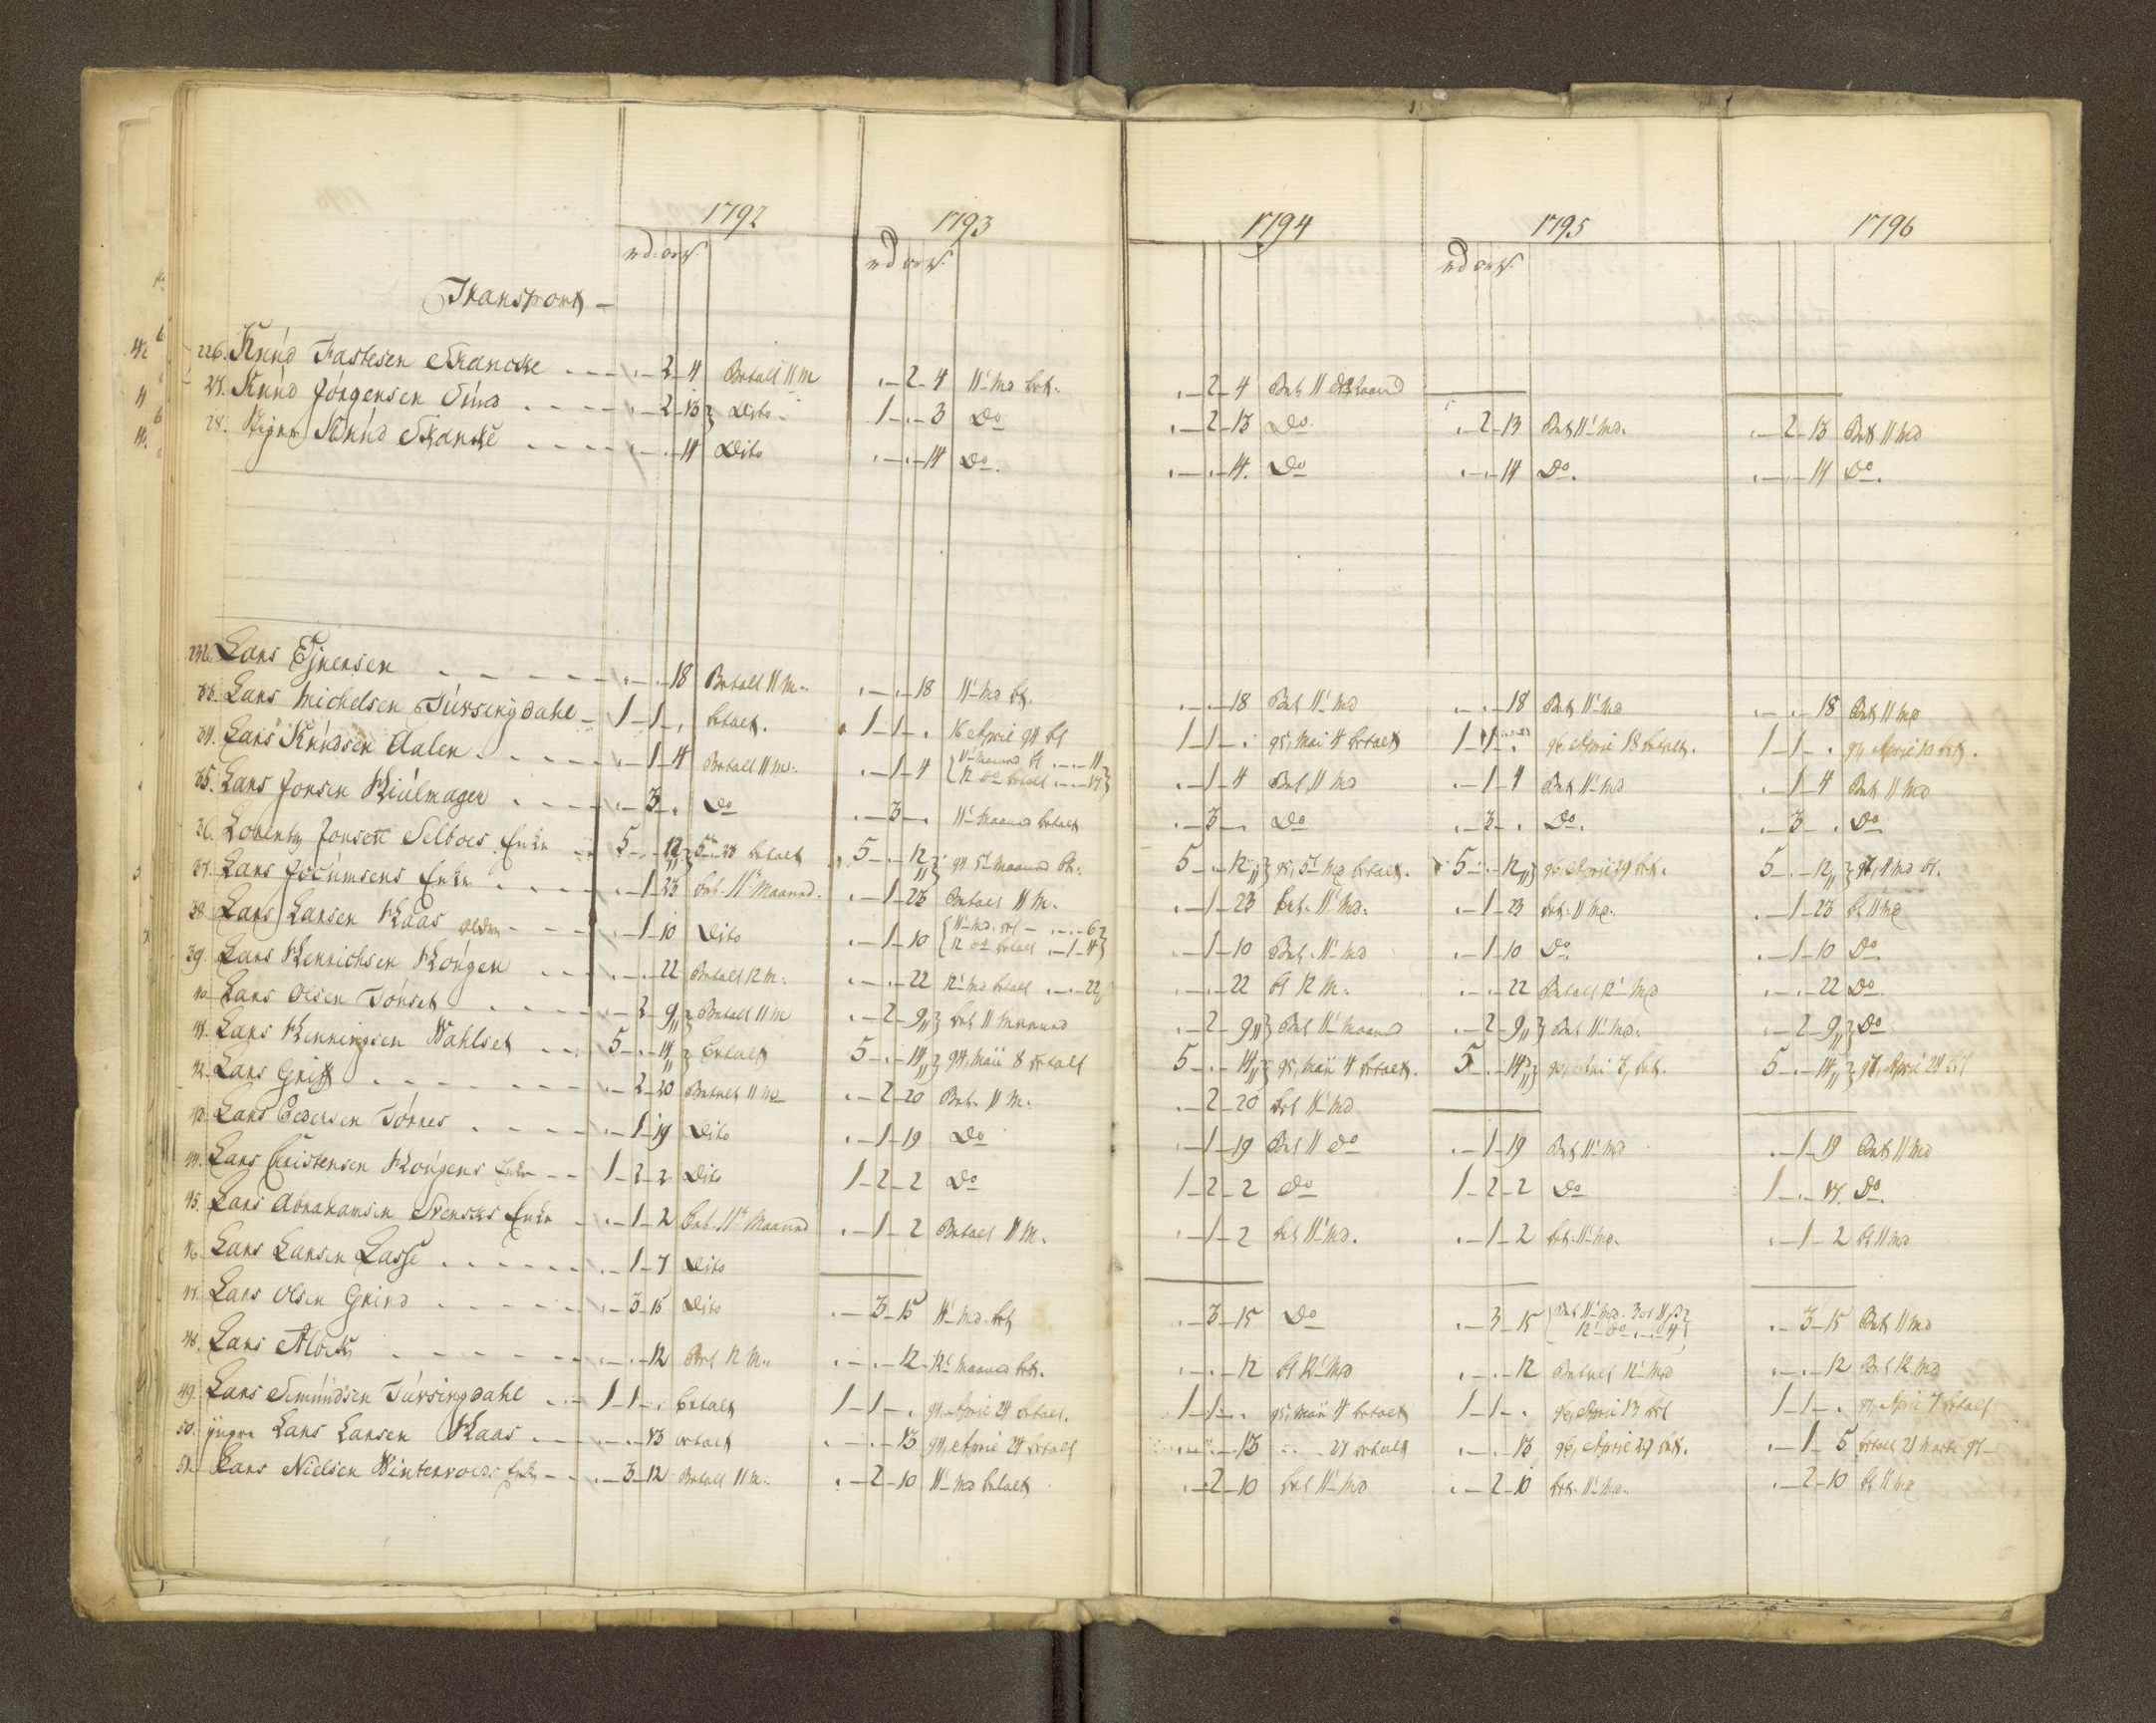 1792 1793 1794 1795 1796
rd. ort ſ. rd ort ſ. rd ort ſ.
Transport –
226. Knúd Fastesen Skancke - - - . – 2 – 4 Betalt 11 M . – 2 – 4 11' Md bet. . – 2 – 4 Bet 11 Maaned
27. Knúd Jörgensen Súnd . - - - . – 2 – 13 } Dito – 1 – . – 3 Do . – 2 – 13 Do. . – 2 – 13 Bet 11' Md. . – 2 – 13 Bet 11 Md
28. Knúd Skanke . - - - . – . – 14 Dito . – . – 14 Do. . – . – 14. Do . – . – 14 Do. . – . – 14 Do.
232. Lars Ejnersen . - - - - . – . – 18 Betalt 11 M. . – . – 18 11' Md bt. . – . – 18 Bet 11' Md . – . – 18 Bet 11' Md . – . – 18 Bet 11 Md
33. Lars Michelsen Túrsingdahl – 1 – 1 – . betalt. 1 – 1 – . 16 April 94 bt 1 – 1 – . 95, Mai 4 betalt 1 – 1 – . 96, April 18 betalt. 1 – 1 – . 97, April 10 bet.
34. Lars Knúdsen Aalen . - - - - . – 1 – 4 Betalt 11 Md. . – 1 – 4 { 11' Maaned bt . – . – 11 . – 1 – 4 Bet 11 Md . – 1 – 4 Bet 11' Md . – 1 – 4 Bet 11 Md
12 do betalt . – . – 17 }
35. Lars Jonsen Hiúlmager . - - - . – 3 – . Do . – 3 – . 11' Maaned betalt . – 3 – . Do . – 3 – . Do. . – 3 – . Do
36. Lorentz Jonsen Selboes Enke - - 5 – . – 12 „ } betalt 5 – . – 12 „ } 94 5' Maaned bt. 5 – . – 12 „ } 95, 5' Md betalt. 5 – . – 12 „ } 96, April 29 bet. 5 – . – 12 „ } 97, 4 Md bt.
37. Lars Jocumsens Enke . - - - . – 1 – 23 bet. 11' Maaned. . – 1 – 23 Betalt 11 M. . – 1 – 23 bet. 11' Md. . – 1 – 23 bet. 11 Md. . – 1 – 23 bt 11 Md
38. Lars Larsen Haas Ældre - - - . – 1 – 10 Dito . – 1 – 10 { 11' Md. bet – . – . – 6 . – 1 – 10 Bet. 11' Md . – 1 – 10 Do . – 1 – 10 Do
12 do betalt . – 1 – 4 }
39. Lars Henrichsen Kongen . - - . – . – 22 Betalt 12 M. . – . – 22 12' Md betalt . – . – 22 . – . – 22 bt 12 M. . – . – 22 Betalt 12' Md . – . – 22 Do.
40. Lars Olsen Tönset . - - - - . – 2 – 9 „ } Betalt 11 M . – 2 – 9 „ } bet 11 Maaned . – 2 – 9 „ } Bet 11' Maaned . – 2 – 9 „ } Bet 11' Md. . – 2 – 9 „ } Do
41. Lars Henningsen Wahlset . - - 5 – . – 14 „ } betalt 5 – . – 14 „ } 94, Maii 8 betalt 5 – . – 14 „ } 95, Maii 4 betalt. 5 – . – 14 „ } bet. 5 – . – 14 „ } 97, April 24 bet
42. Lars Griff . - - - - - . – 2 – 20 Betalt 11 Md . – 2 – 20 Bet. 11 M. . – 2 – 20 bet 11' Md
43. Lars Pedersen Tönnes . - - - . – 1 – 19 Dito . – 1 – 19 Do . – 1 – 19 Bet 11 do . – 1 – 19 Bet 11' Md . – 1 – 19 Bet 11 Md
44. Lars Christensen Kongens Enke - - 1 – 2 – 2 Dito 1 – 2 – 2 Do 1 – 2 – 2 Do 1 – 2 – 2 Do 1 – . – 17. Do.
45. Lars Abrahamsen Svenskes Enke - . – 1 – 2 bet. 11' Maaned . – 1 – 2 Betalt 11 M. . – 1 – 2 bet 11' Md. . – 1 – 2 bet. 11' Md. . – 1 – 2 bt 11 Md
46. Lars Larsen Lasse . - - - - - . – 1 – 7 Dito
47. Lars Olsen Grind . - - - - . – 3 – 15 Dito . – 3 – 15 11' Md. bet . – 3 – 15 Do . – 3 – 15 { Bet 11' Md. 3 ort 11 ſ . – 3 – 15 Bet 11 Md
12 – do . – . – 4 }
48. Lars . - - - - - . – . – 12 Bet 12 M. . – . – 12 12' Maaned bet. . – . – 12 bt 12' Md . – . – 12 Betalt 12' Md . – . – 12 Bet 12 Md
49. Lars Simúndsen Túrsingdahl . - - 1 – 1 – . betalt 1 – 1 – . 94, April 24 betalt. 1 – 1 – . 95, Maii 4 betalt 1 – 1 – . 96, April 13 bet 1 – 1 – . 97, April 7 betalt
50. yngre Lars Larsen Haas . - - - . – . – 13 betalt . – . – 13 94, April 24 betalt . – . – 13 27 betalt . – . – 13 96, April 29 bet. . – 1 – 5 betalt 21 Marti 97 –
51. Lars Nielsen Wintervolds Enke - - . – 3 – 12 Betalt 11 M. . – 2 – 10 11' Md betalt . – 2 – 10 bet 11' Md . – 2 – 10 bet. 11' Md. . – 2 – 10 bt 11 Md